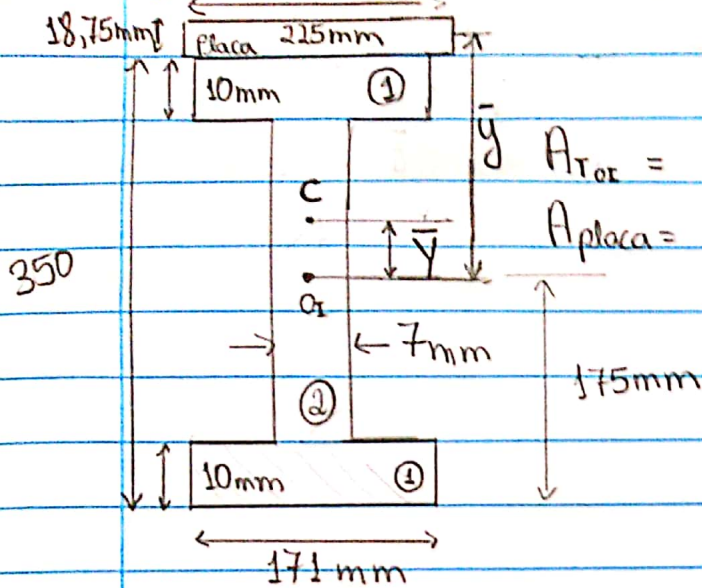 18,75mm placa 225mm
10mm ①
ȳ
A_TOT =
C
A_placa =
Ȳ
350
O_I
7mm
175mm
②
10mm ①
171 mm